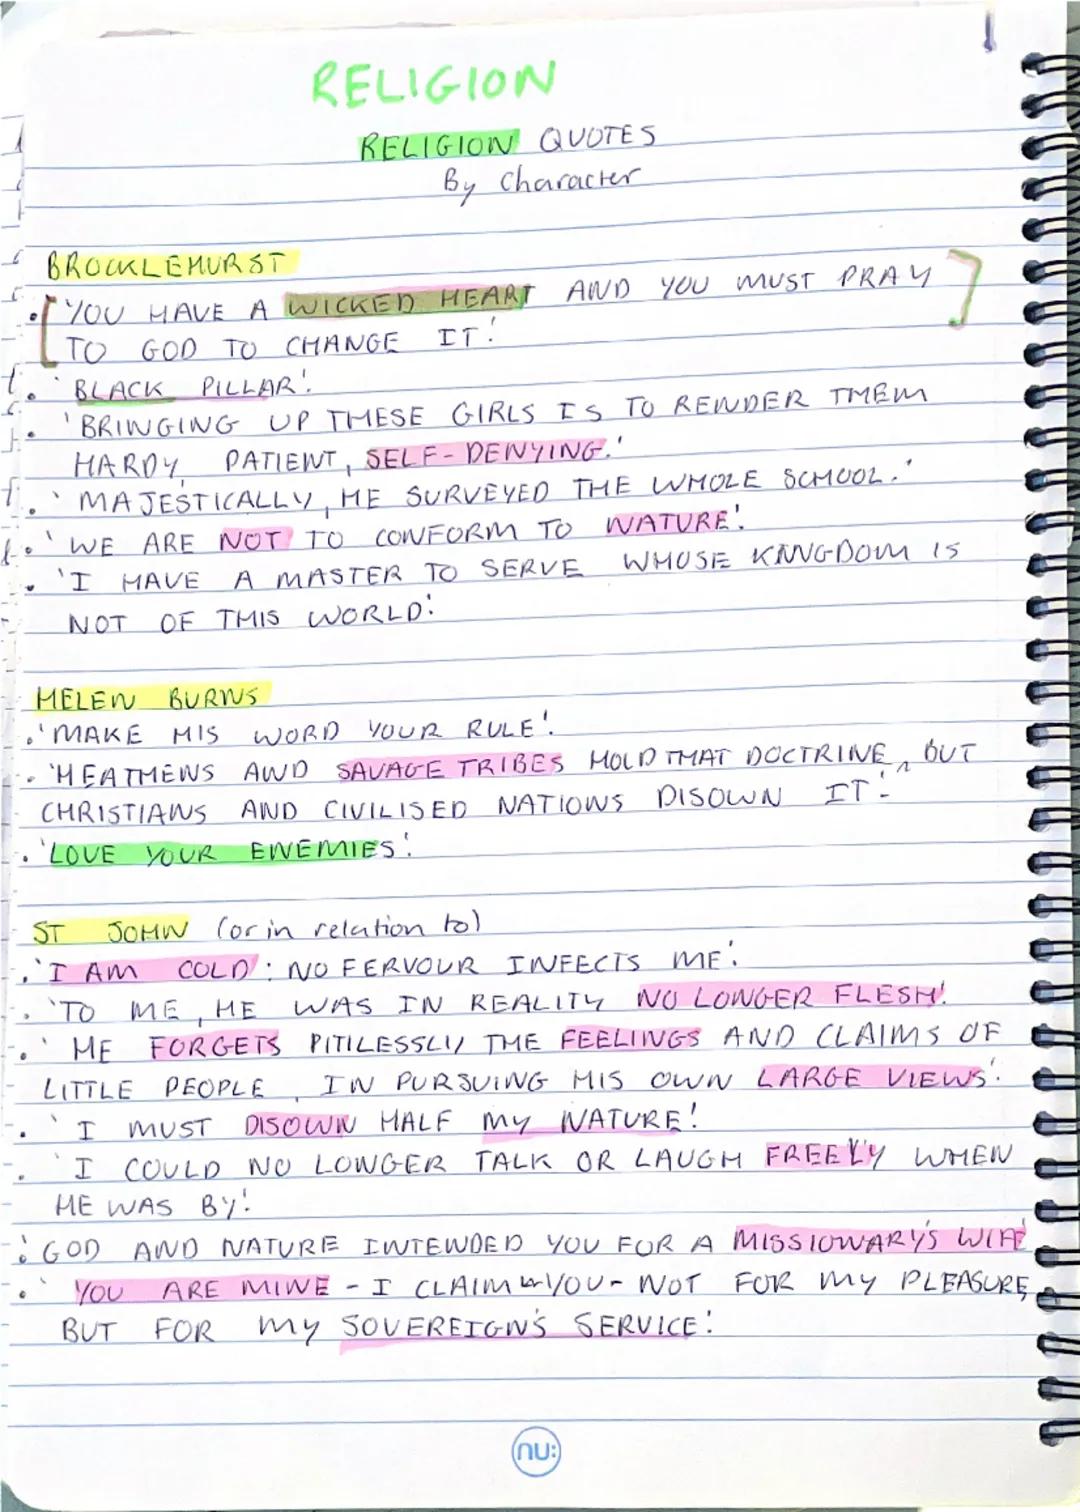 RELIGION
RELIGION QUOTES
By Character
BROCKLEHURST
• 'YOU HAVE A WICKED HEART AND YOU MUST PRAY
TO GOD TO CHANGE IT.'
• 'BLACK PILLAR'.
• 'BRINGING UP THESE GIRLS IS TO RENDER THEM
HARDY, PATIENT, SELF-DENYING.'
• 'MAJESTICALLY, HE SURVEYED THE WHOLE SCHOOL.'
• 'WE ARE NOT TO CONFORM TO NATURE'.
• 'I HAVE A MASTER TO SERVE WHOSE KINGDOM IS
NOT OF THIS WORLD'.
HELEN BURNS
• 'MAKE HIS WORD YOUR RULE'.
• 'HEATHENS AND SAVAGE TRIBES HOLD THAT DOCTRINE, BUT
CHRISTIANS AND CIVILISED NATIONS DISOWN IT'.
• 'LOVE YOUR ENEMIES'.
ST JOHN (or in relation to)
• 'I AM COLD: NO FERVOUR INFECTS ME'.
• 'TO ME, HE WAS IN REALITY NO LONGER FLESH'.
• 'HE FORGETS PITILESSLY THE FEELINGS AND CLAIMS OF
LITTLE PEOPLE, IN PURSUING HIS OWN LARGE VIEWS'.
• 'I MUST DISOWN HALF MY NATURE'.
• 'I COULD NO LONGER TALK OR LAUGH FREELY WHEN
HE WAS BY'.
• 'GOD AND NATURE INTENDED YOU FOR A MISSIONARY'S WIFE'
• 'YOU ARE MINE - I CLAIM YOU - NOT FOR MY PLEASURE,
BUT FOR MY SOVEREIGN'S SERVICE'.
nu: